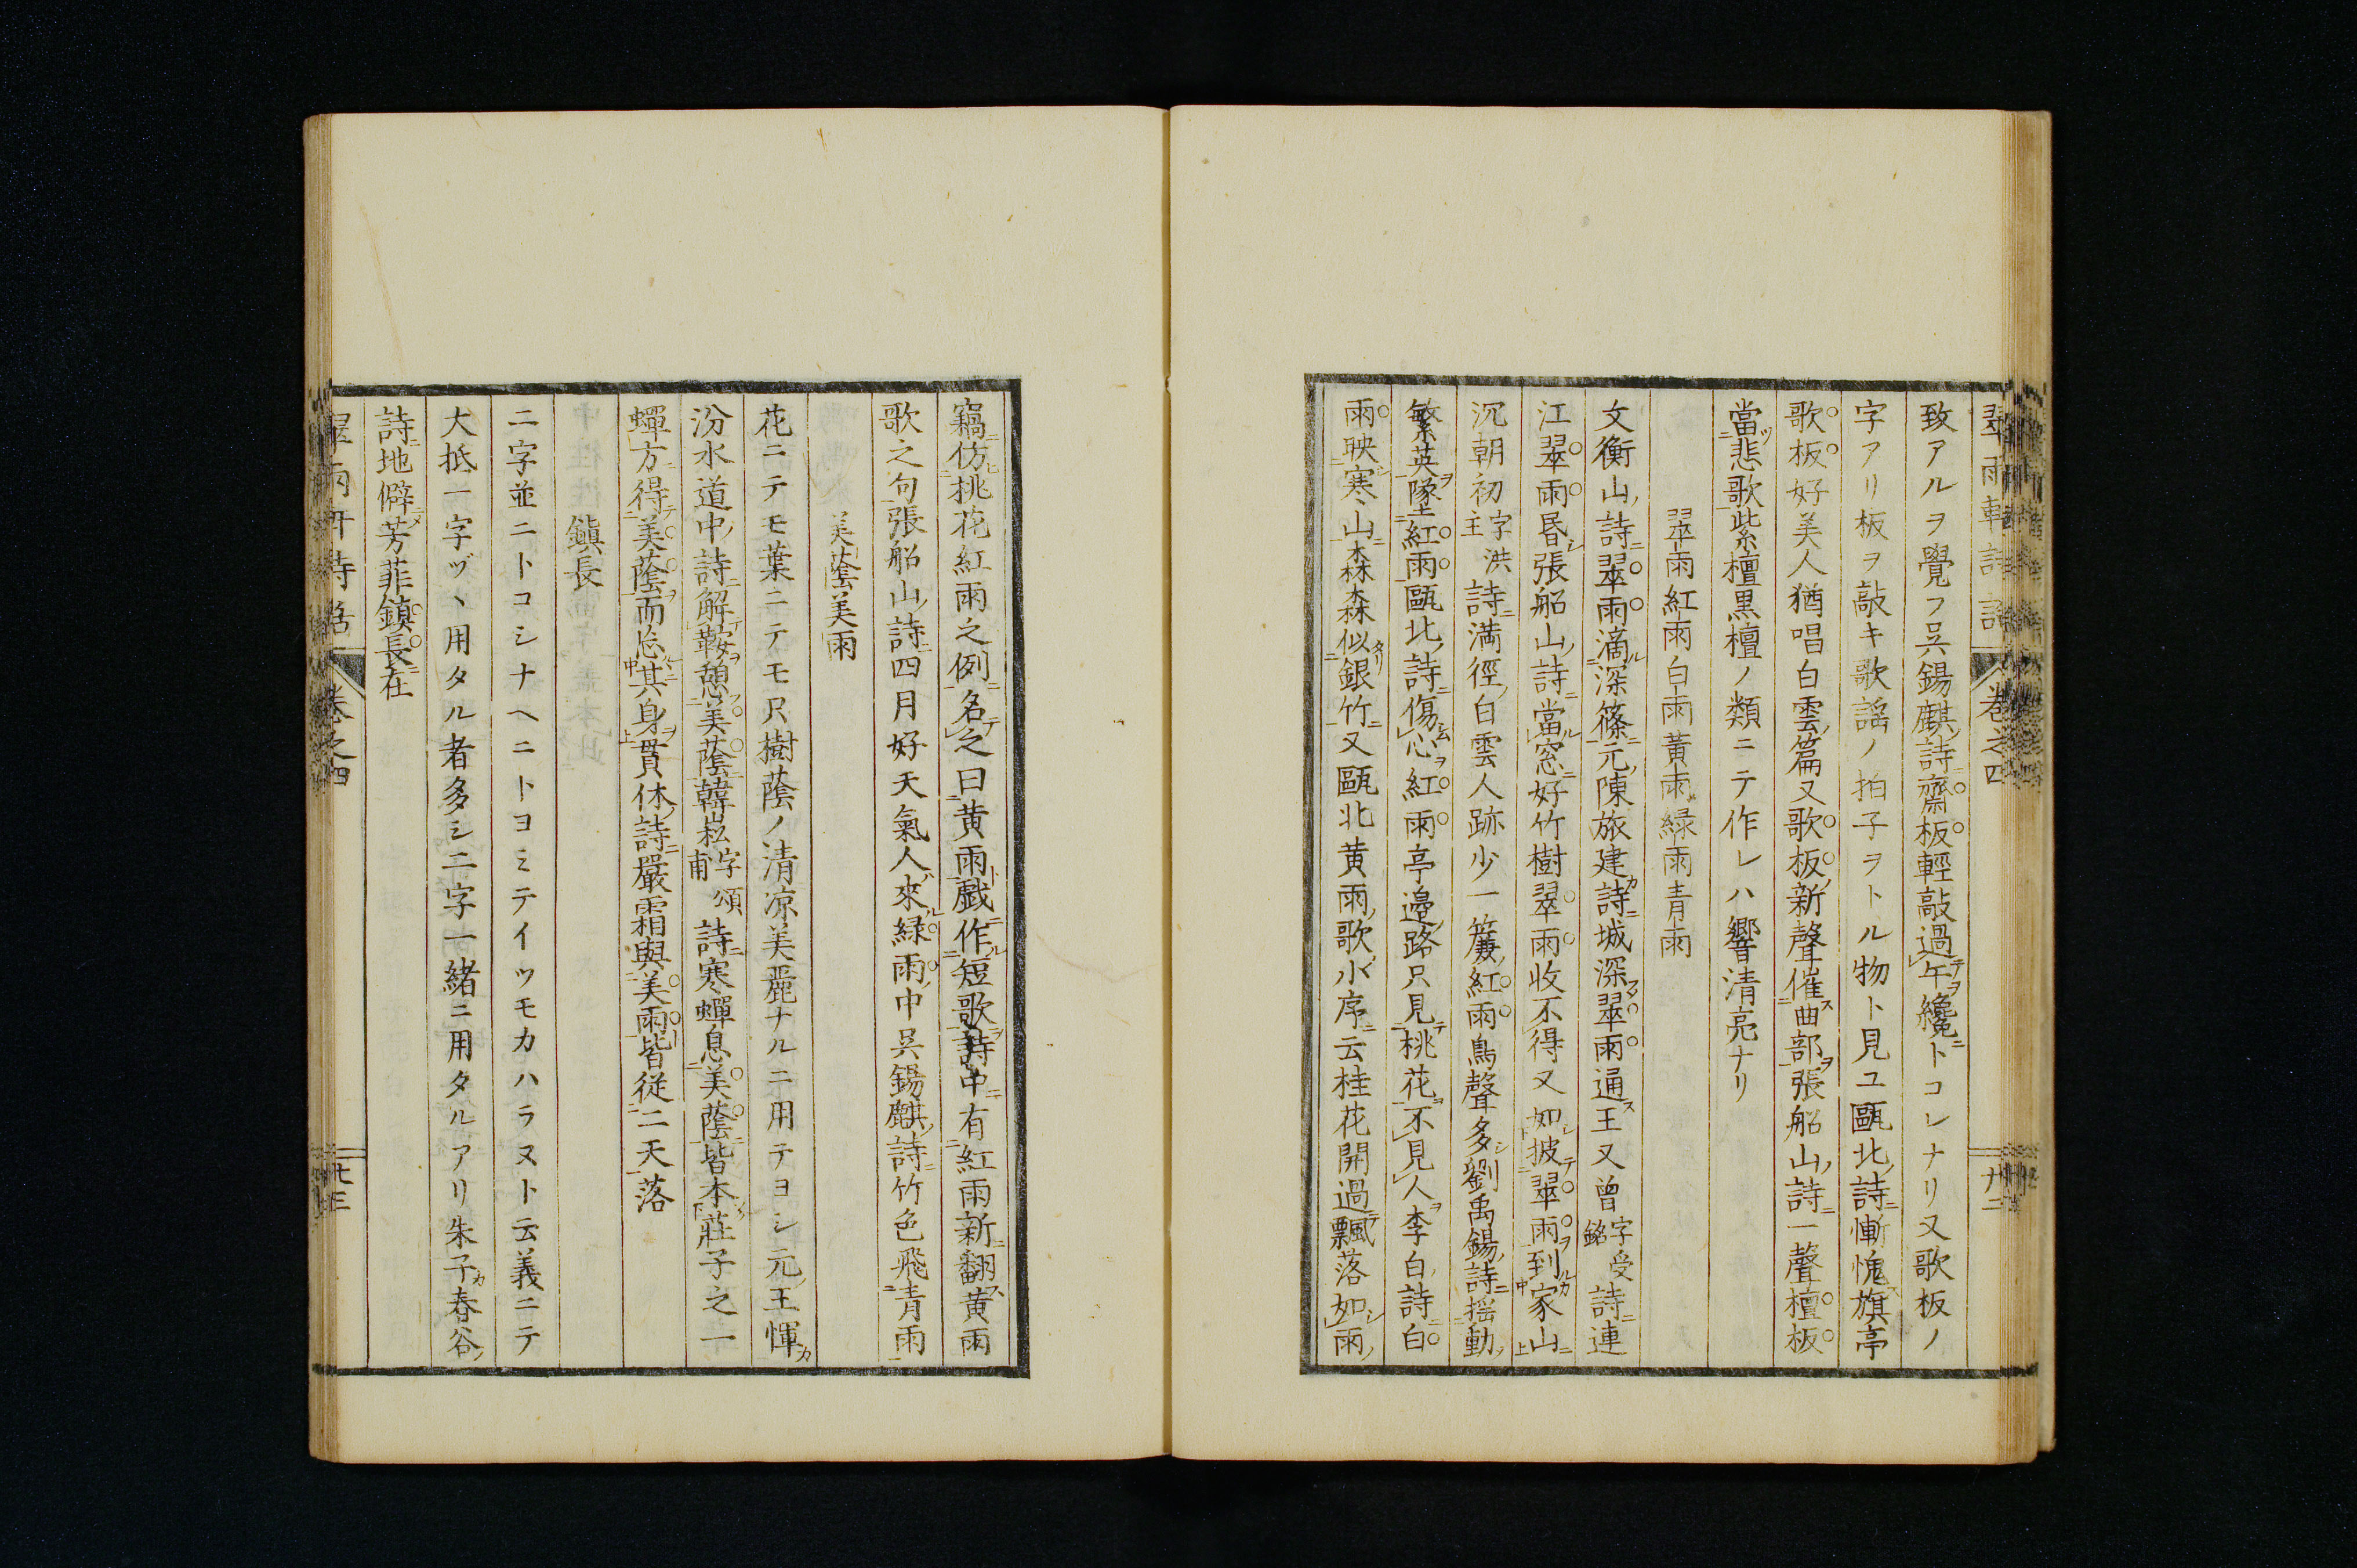 翠雨軒詩話 卷之四 廿二
致アルヲ覺フ呉錫麒詩齋板輕敲過午纔トコレナリ又歌板ノ
字アリ板ヲ敲キ歌謡ノ拍子ヲトル物ト見ユ甌北詩慚愧旗亭
歌板好美人猶唱白雲篇又歌板新聲催曲部張船山詩一聲檀板
當悲歌紫檀黒檀ノ類ニテ作レハ響清亮ナリ
翠雨紅雨白雨黃雨緑雨青雨
文衡山詩翠雨滴深篠元陳旅建詩城深翠雨通王又曾字受銘詩連
江翠雨昏張船山詩當窓好竹樹翠雨收不得又如披翠雨到家山
沉朝初字洪主詩滿徑白雲人跡少一簾紅雨鳥聲多劉禹錫詩揺動
繁英墜紅雨甌北詩傷心紅雨亭邊路只見桃花不見人李白詩白
雨映寒山森森似銀竹又甌北黄雨歌小序云桂花開過飄落如雨
竊仿桃花紅雨之例名之曰黄雨戯作短歌詩中有紅雨新翻黄雨
歌之句張船山詩四月好天氣人來緑雨中呉錫麒詩竹色飛青雨
美蔭美雨
花ニテモ葉ニテモ只樹蔭ノ清凉美麗ナルニ用テヨシ元王惲
汾水道中詩解鞍憩美蔭韓崧字頌甫詩寒蟬息美蔭皆本莊子之一
蟬方得美蔭而忘其身貫休詩嚴霜與美雨皆從二天落
鎭長
二字並ニトコシナヘニトヨミテイツモカハラヌト云義ニテ
大抵一字ヅヽ用タル者多シ二字一緒ニ用タルアリ朱子春谷
詩地僻芳菲鎭長在
翠雨軒詩話 卷之四 廿三